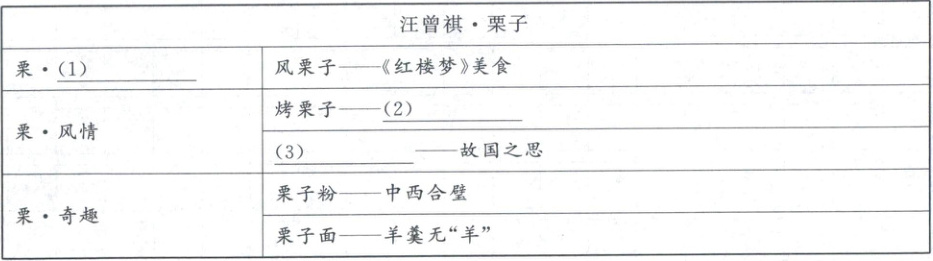 汪曾祺·栗子
栗·(1)
风栗子——《红楼梦》美食
栗·风情
烤栗子——(2)
(3) ——故国之思
栗·奇趣
栗子粉——中西合璧
栗子面——羊羹无“羊”